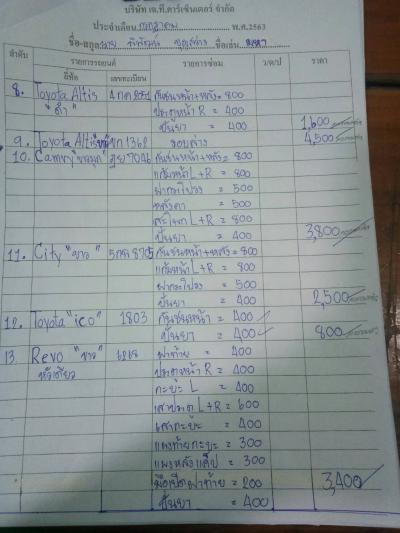 บริษัท เจ.ที.คาร์เซ็นเตอร์ จำกัด
ประจำเดือน กรกฎาคม พ.ศ.2563
ชื่อ-สกุล นาย ชื่อเล่น
ลำดับ รายการรถยนต์ รายการซ่อม ว/ด/ป ราคา
ยี่ห้อ เลขทะเบียน
8. Toyota Altis กันชนหน้า+หลัง = 800
"ดำ" ประตูหน้า R = 400
ปั้นยา = 400 1,600
9. Toyota Altis 1362 รอบล่าง 4,500
10. Camry 7046 กันชนหน้า+หลัง = 800
แก้มหน้า L+R = 800
ฝากระโปรง = 500
หลังคา = 500
สเกิต L+R = 800
ปั้นยา = 400 3,800
11. City "ขาว" 5กด 8705 กันชนหน้า+หลัง = 800
แก้มหน้า L+R = 800
ฝากระโปรง = 500
ปั้นยา = 400 2,500
12. Toyota "ico" 1803 กันชนหน้า = 400
ปั้นยา = 400 800
13. Revo "ขาว" 6268 ฝาท้าย = 400
หัวเดียว ประตูหน้า R = 400
กะบะ L = 400
เสาประตู L+R = 600
เสากะบะ = 400
แผงท้ายกะบะ = 300
แผงหลังแค็ป = 300
มือเปิดฝาท้าย = 200 3,400
ปั้นยา = 400